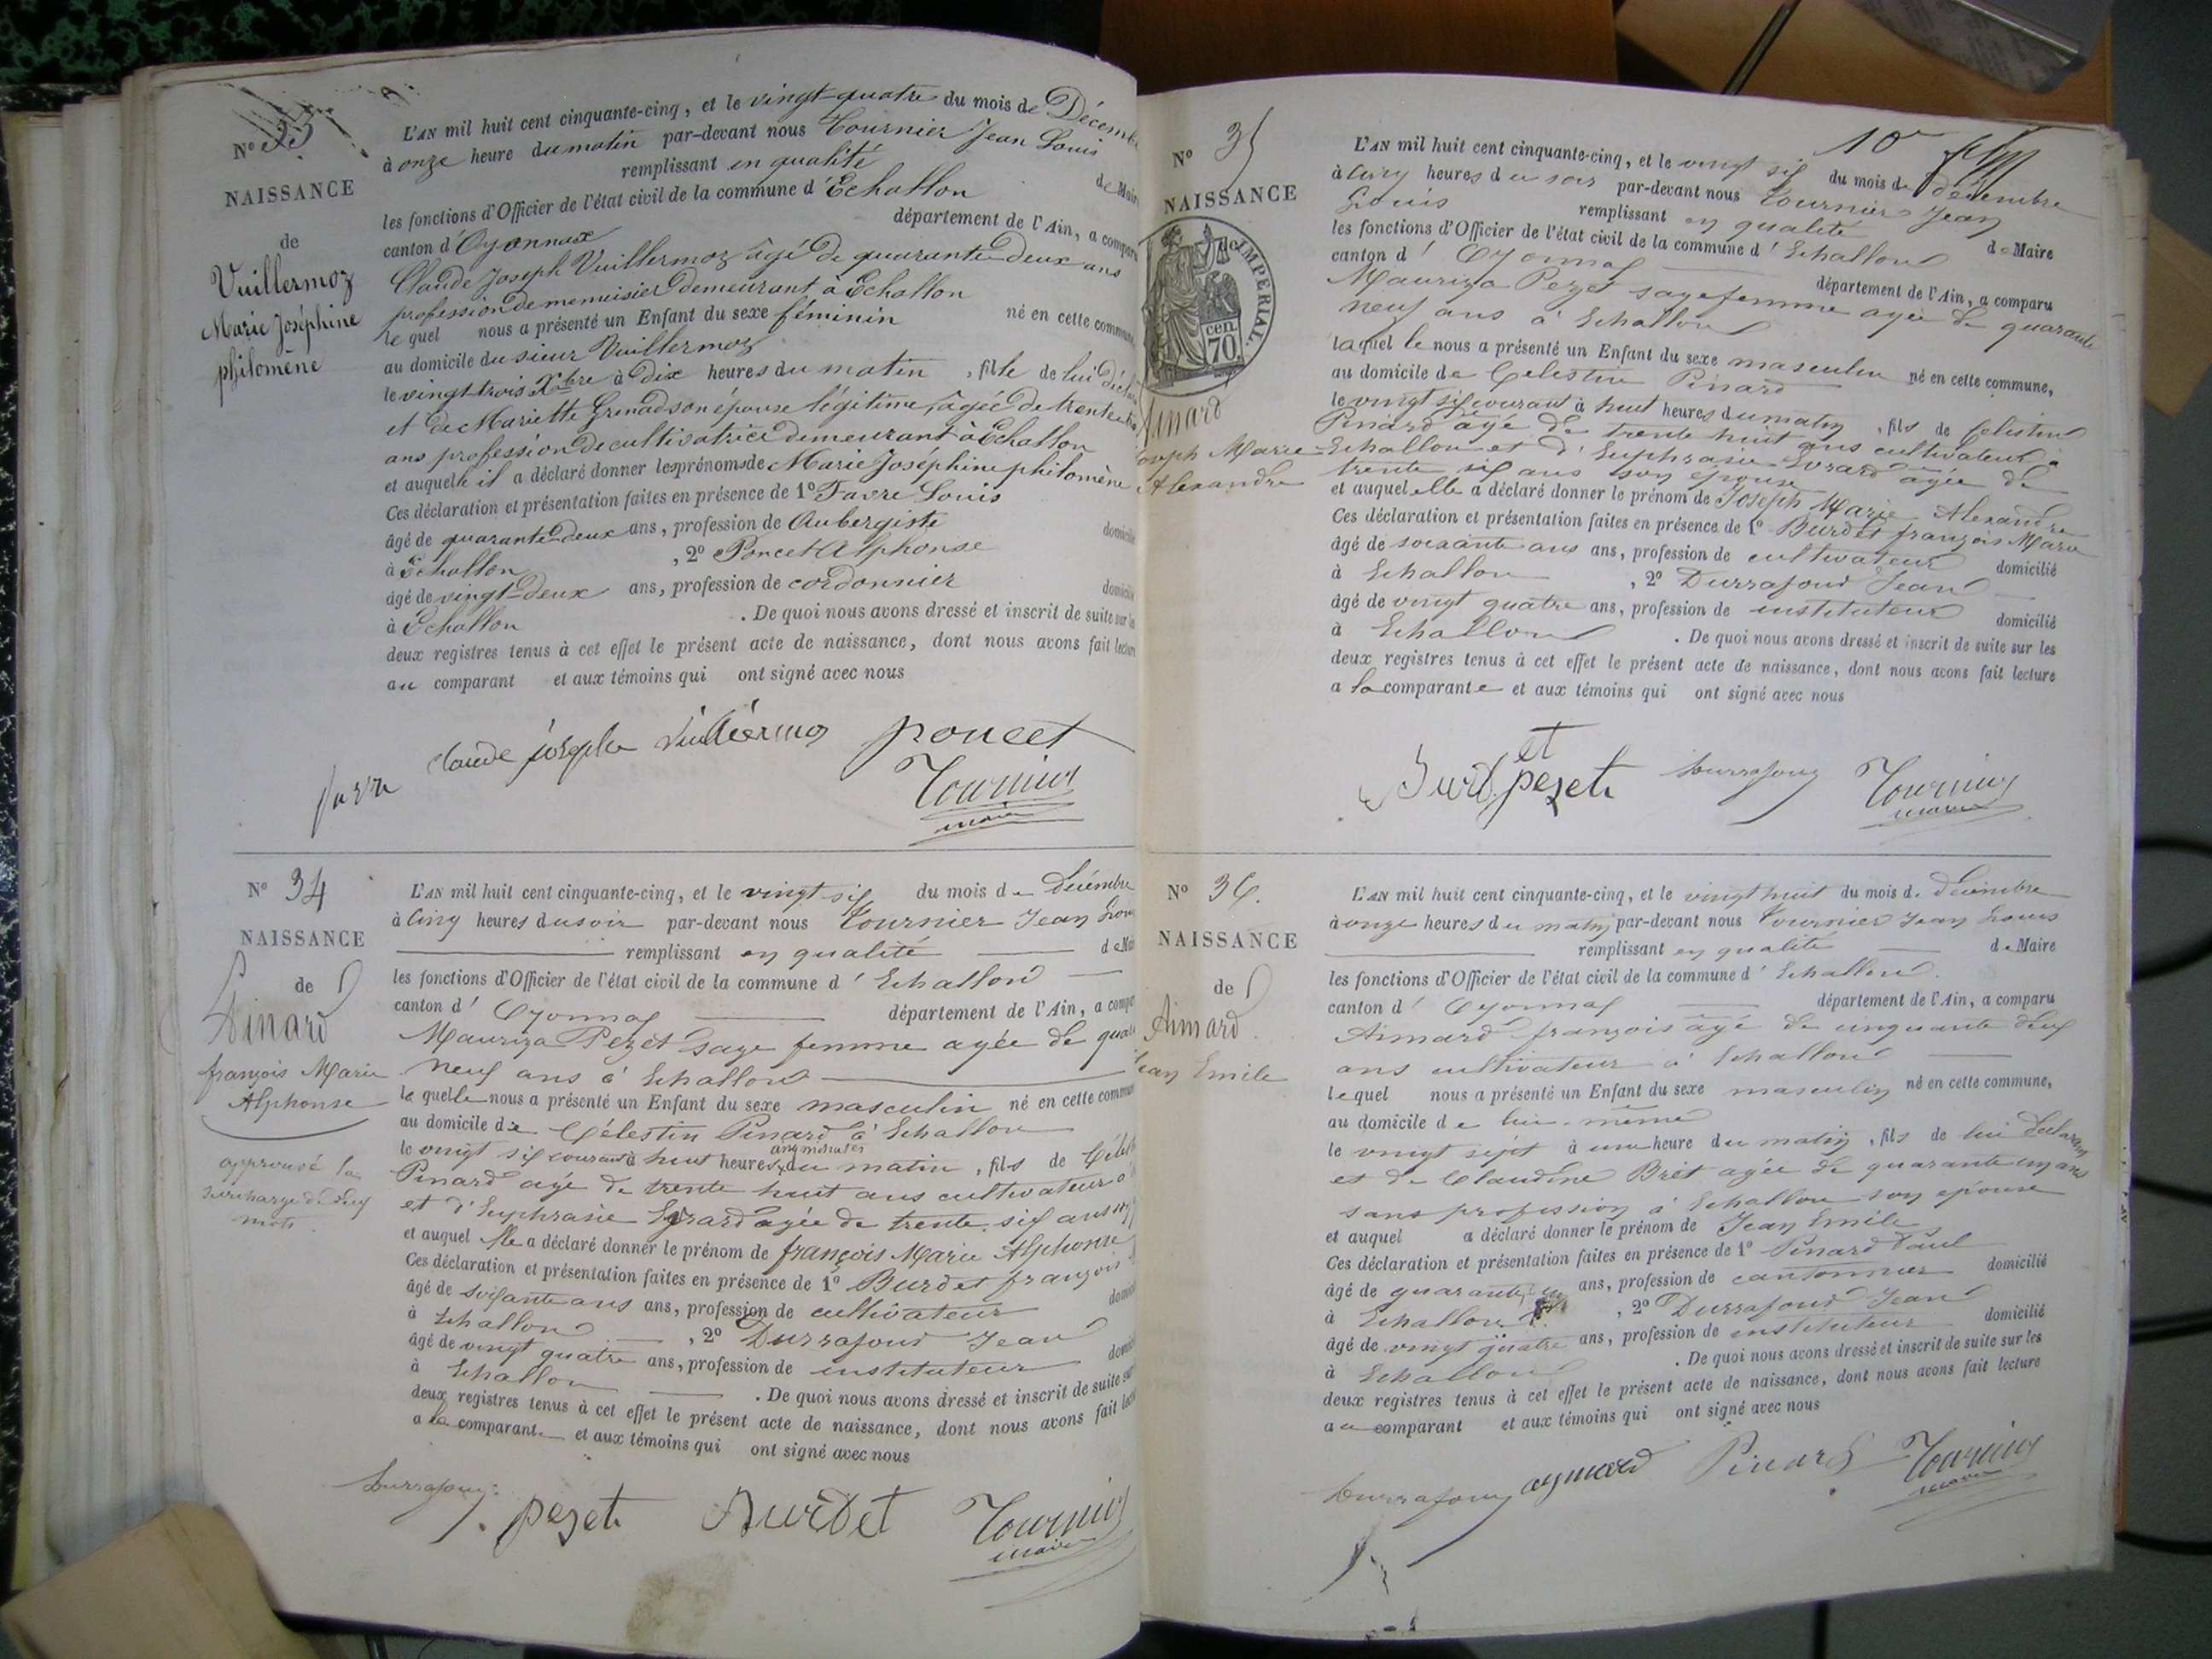 N° 33
NAISSANCE
de
Vuillermoz
Marie Joséphine
philomène
L'AN mil huit cent cinquante-cinq, et le vingt-quatre du mois de Décemb
à onze heure du matin par-devant nous Tournier Jean Louis
remplissant en qualité de Maire
les fonctions d'Officier de l'état civil de la commune d'Echallon
canton d'Oyonnax département de l'Ain, a comparu
Claude Joseph Vuillermoz âgé de quarante-deux ans
profession de menuisier demeurant à Echallon
le quel nous a présenté un Enfant du sexe féminin né en cette commune,
au domicile du sieur Vuillermoz
le vingt-trois Xbre à dix heures du matin, fille de lui
et de Mariette Grenad son épouse légitime, âgée de trente
ans profession de cultivatrice demeurant à Echallon
et auquelle il a déclaré donner les prénoms de Marie Joséphine philomène
Ces déclaration et présentation faites en présence de 1° Favre Louis
âgé de quarante-deux ans, profession de Aubergiste domicilié
à Echallon, 2° Poncet Alphonse
âgé de vingt-deux ans, profession de cordonnier domicilié
à Echallon. De quoi nous avons dressé et inscrit de suite sur les
deux registres tenus à cet effet le présent acte de naissance, dont nous avons fait lecture
au comparant et aux témoins qui ont signé avec nous
claude joseph vuillermoz poncet
favre Tournier
maire
N° 34
NAISSANCE
de
Pinard
françois Marie
Alphonse
approuvé la
surcharge de deux
mots.
L'AN mil huit cent cinquante-cinq, et le vingt six du mois de Décembre
à cinq heures du soir par-devant nous Tournier Jean Louis
remplissant en qualité de Maire
les fonctions d'Officier de l'état civil de la commune d'Echallon
canton d'Oyonnax département de l'Ain, a comparu
Mauriza Pezet sage femme agée de quarante
neuf ans à Echallon
la quelle nous a présenté un Enfant du sexe masculin né en cette commune
au domicile de Célestin Pinard à Echallon
le vingt six courant à huit heures cinq minutes du matin, fils de Célestin
Pinard agé de trente huit ans cultivateur à
et d'Euphrasie Evrard agée de trente six ans
et auquel elle a déclaré donner le prénom de françois Marie Alphonse
Ces déclaration et présentation faites en présence de 1° Burdet françois
âgé de soixante ans ans, profession de cultivateur domicilié
à Echallon, 2° Durrafour Jean
âgé de vingt quatre ans, profession de instituteur domicilié
à Echallon. De quoi nous avons dressé et inscrit de suite sur
deux registres tenus à cet effet le présent acte de naissance, dont nous avons fait lecture
a la comparante et aux témoins qui ont signé avec nous
Durrafour pezet Burdet Tournier
maire
N° 35
NAISSANCE
de
IMPERIAL.
70. cen.
Pinard
Joseph Marie
Alexandre
10
L'AN mil huit cent cinquante-cinq, et le vingt six du mois de décembre
à cinq heures du soir par-devant nous Tournier Jean
Louis remplissant en qualité de Maire
les fonctions d'Officier de l'état civil de la commune d'Echallon
canton d'Oyonnax département de l'Ain, a comparu
Mauriza Pezet sage femme agée de quarante
neuf ans à Echallon
laquel le nous a présenté un Enfant du sexe masculin né en cette commune,
au domicile de Celestin Pinard
le vingt six courant à huit heures du matin, fils de Celestin
Pinard âgé de trente huit ans cultivateur à
Echallon et d'Euphrasie Evrard agée de
trente six ans son épouse
et auquel elle a déclaré donner le prénom de Joseph Marie Alexandre
Ces déclaration et présentation faites en présence de 1° Burdet françois Marie
âgé de soixante ans ans, profession de cultivateur domicilié
à Echallon, 2° Durrafour Jean
âgé de vingt quatre ans, profession de instituteur domicilié
à Echallon. De quoi nous avons dressé et inscrit de suite sur les
deux registres tenus à cet effet le présent acte de naissance, dont nous avons fait lecture
a la comparante et aux témoins qui ont signé avec nous
Burdet pezet Durrafour Tournier
maire
N° 36.
NAISSANCE
de
Aimard
Jean Emile
L'AN mil huit cent cinquante-cinq, et le vingt huit du mois de Décembre
à onze heures du matin par-devant nous Tournier Jean Louis
remplissant en qualité de Maire
les fonctions d'Officier de l'état civil de la commune d'Echallon.
canton d'Oyonnax département de l'Ain, a comparu
Aimard françois âgé de cinquante deux
ans cultivateur à Echallon
lequel nous a présenté un Enfant du sexe masculin né en cette commune,
au domicile de lui-même
le vingt sept à une heure du matin, fils de lui déclarant
et de Claudine Bret agée de quarante cinq ans
sans profession à Echallon son épouse
et auquel a déclaré donner le prénom de Jean Emile
Ces déclaration et présentation faites en présence de 1° Pinard Paul
âgé de quarante ans, profession de cantonnier domicilié
à Echallon, 2° Durrafour Jean
âgé de vingt quatre ans, profession de instituteur domicilié
à Echallon. De quoi nous avons dressé et inscrit de suite sur les
deux registres tenus à cet effet le présent acte de naissance, dont nous avons fait lecture
au comparant et aux témoins qui ont signé avec nous
Durrafour aymard Pinard Tournier
maire